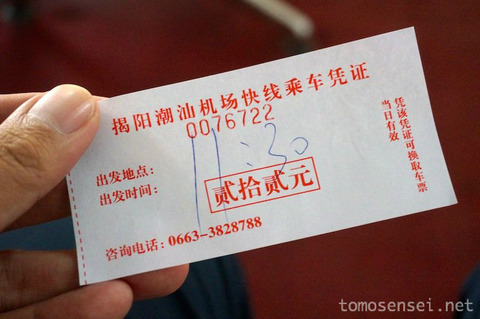 揭阳潮汕机场快线乘车凭证
0076722
出发地点：
出发时间：
11:30
贰拾贰元
咨询电话：0663-3828788
凭该凭证可换取车票
当日有效
tomosensei.net